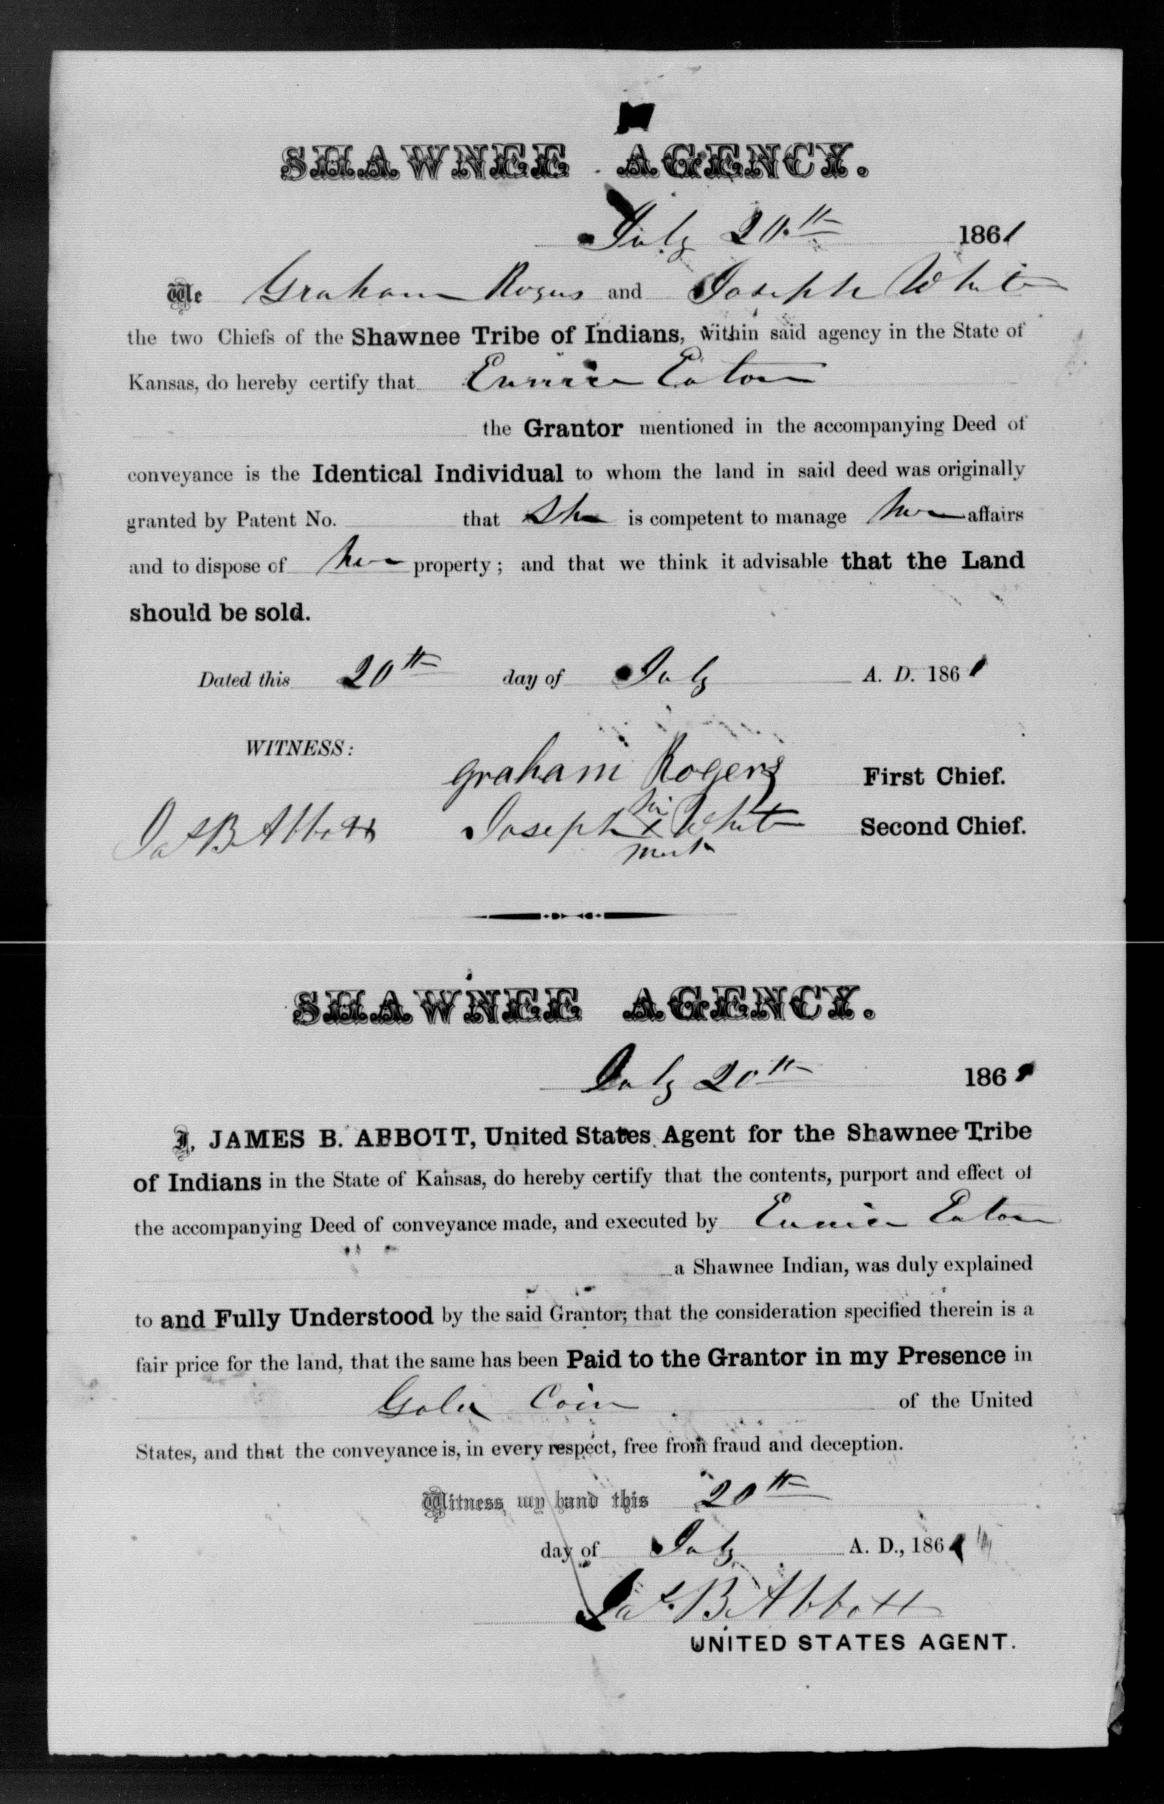 SHAWNEE AGENCY.
July 20th 1861
We Graham Rogers and Joseph White
the two Chiefs of the Shawnee Tribe of Indians, within said agency in the State of
Kansas, do hereby certify that Eunice Eaton
the Grantor mentioned in the accompanying Deed of
conveyance is the Identical Individual to whom the land in said deed was originally
granted by Patent No. that She is competent to manage her affairs
and to dispose of her property; and that we think it advisable that the Land
should be sold.
Dated this 20th day of July A. D. 1861
WITNESS:
Graham Rogers First Chief.
Jas B Abbott Joseph his x mark White Second Chief.
SHAWNEE AGENCY.
July 20th 1861
I, JAMES B. ABBOTT, United States Agent for the Shawnee Tribe
of Indians in the State of Kansas, do hereby certify that the contents, purport and effect of
the accompanying Deed of conveyance made, and executed by Eunice Eaton
a Shawnee Indian, was duly explained
to and Fully Understood by the said Grantor; that the consideration specified therein is a
fair price for the land, that the same has been Paid to the Grantor in my Presence in
Gold Coin of the United
States, and that the conveyance is, in every respect, free from fraud and deception.
Witness my hand this 20th
day of July A. D., 1861
Jas. B Abbott
UNITED STATES AGENT.